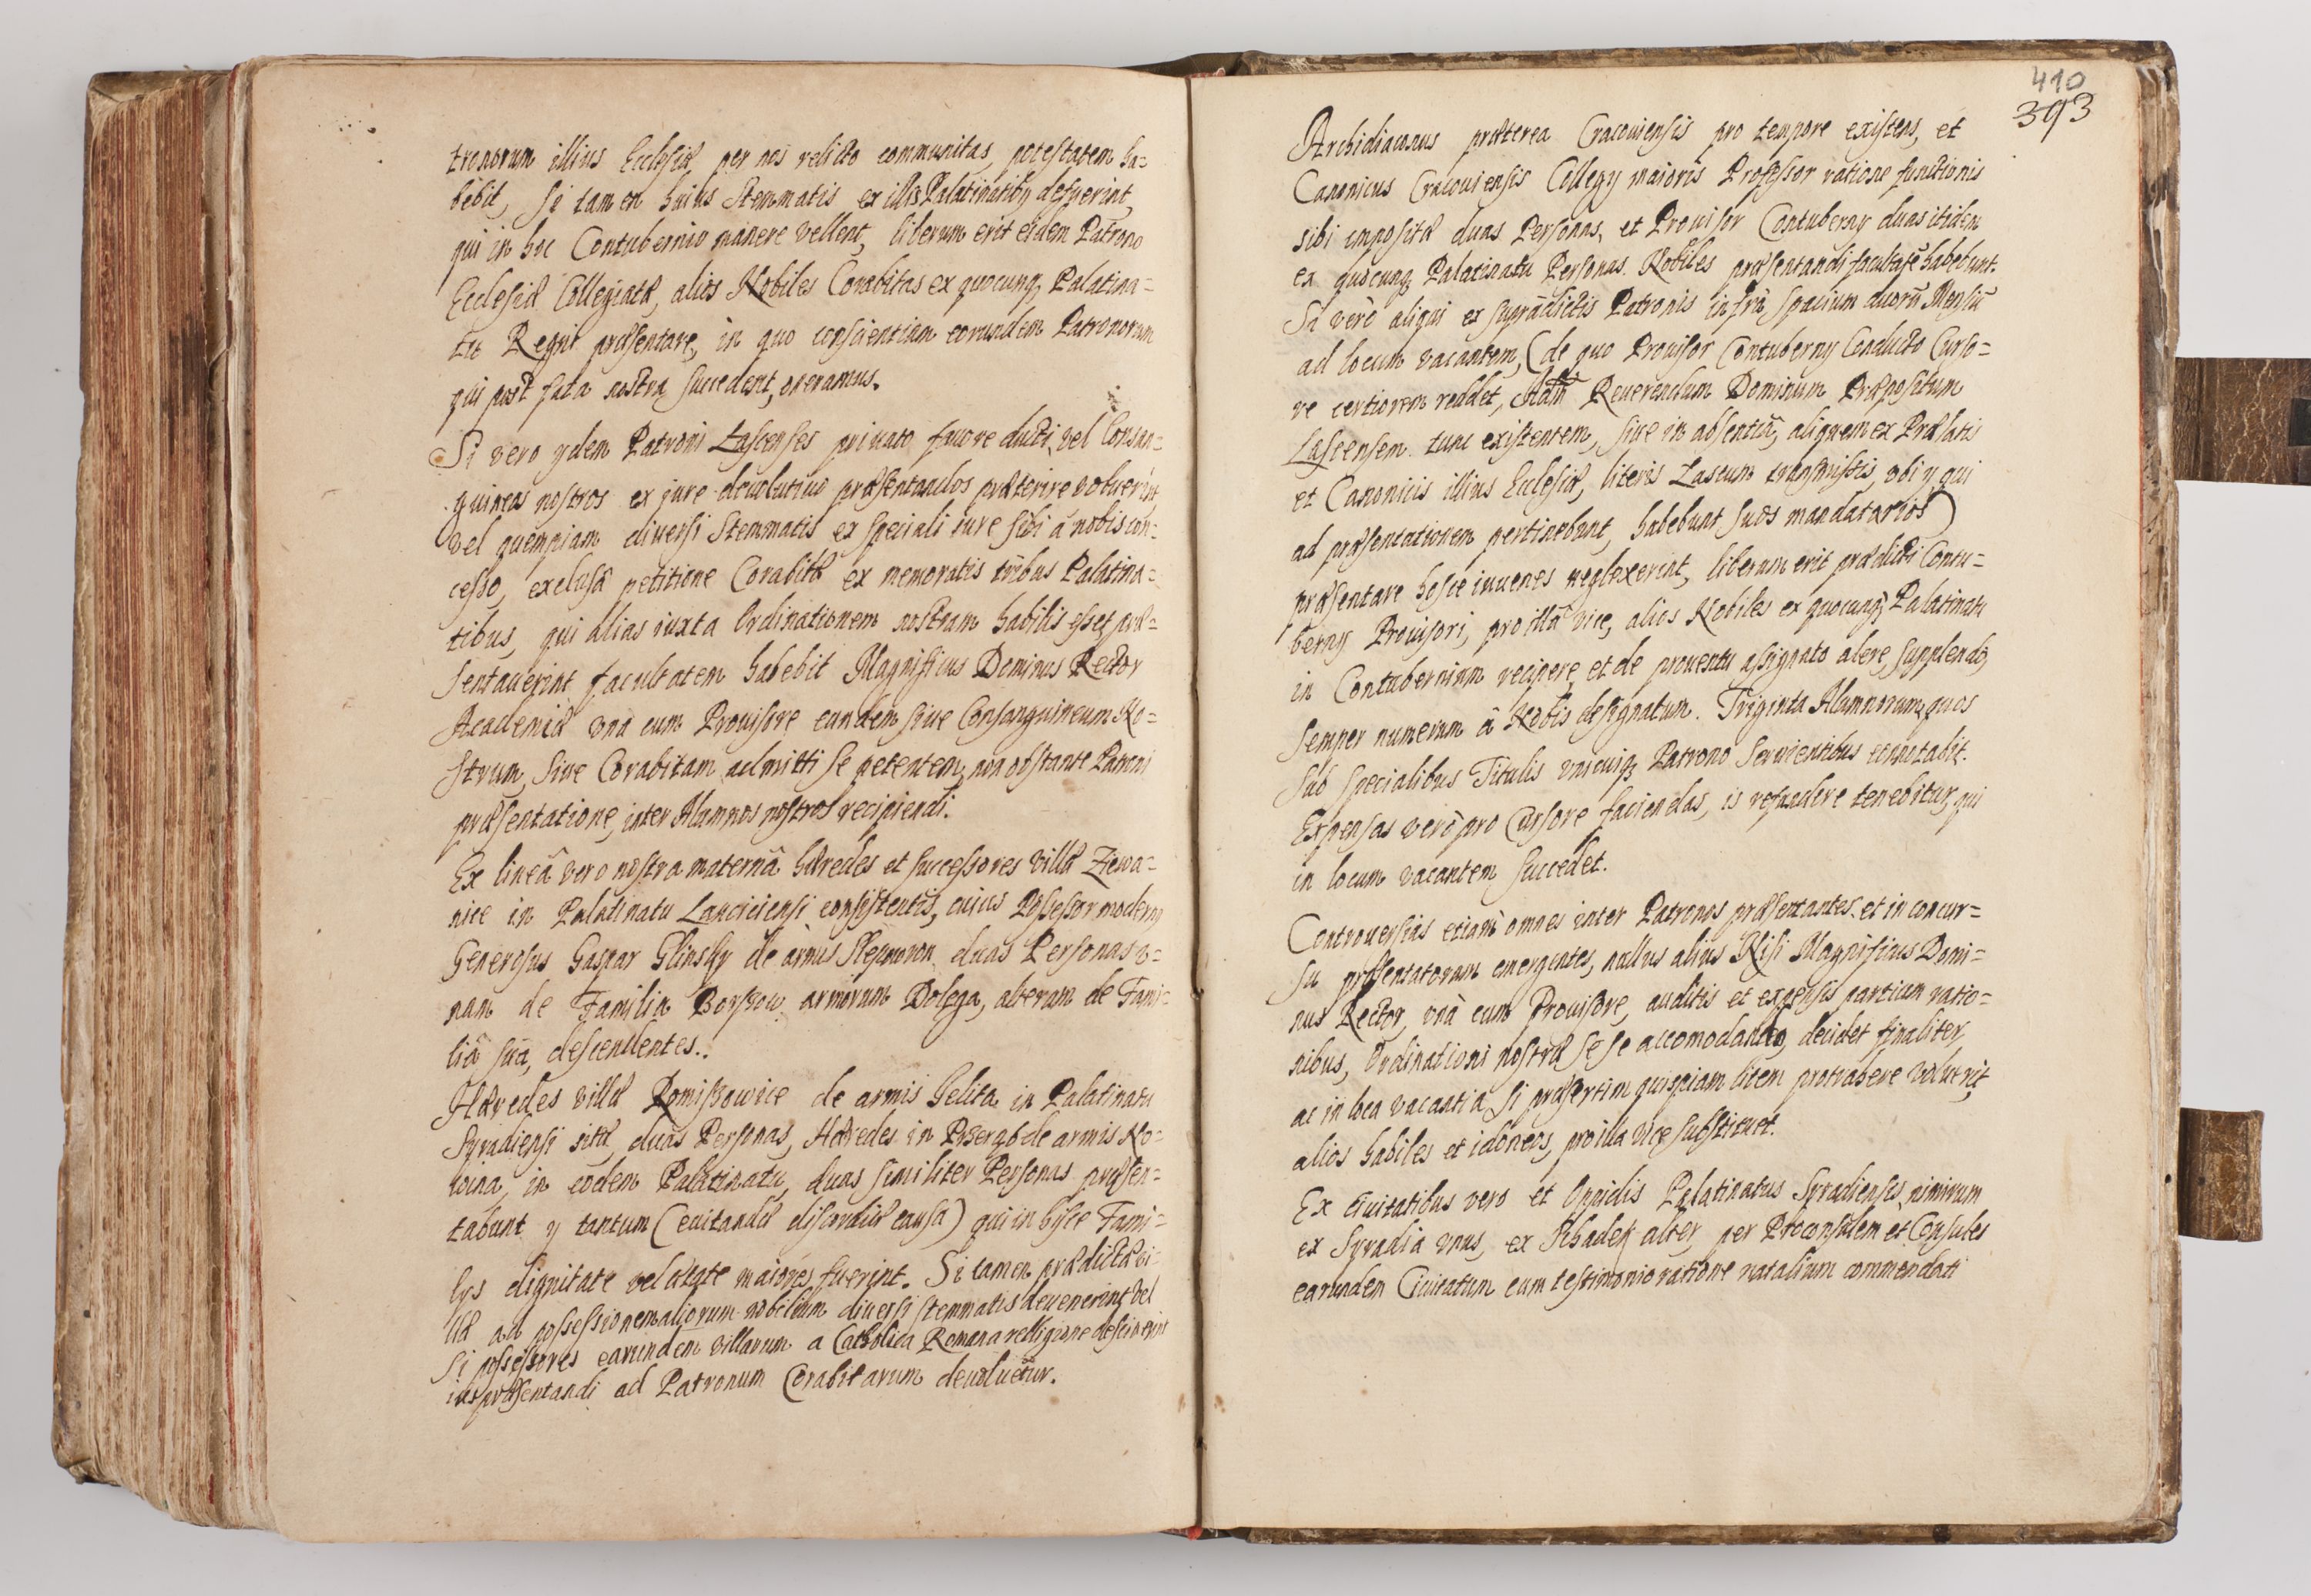 tronorum illius Ecclesiæ per nos relicto communitas, potestatem ha=
bebit, Si tamen huius Stemmatis ex illis Palatinatibus defuerint
qui in hoc Contubernio manere vellent, liberum erit eidem Patrono
Ecclesiæ Collegiatæ, alios Nobiles Corabitas ex quocunq Palatina=
tu Regni præsentare, in quo conscientiam eorundem Patronorum
qui post fata nostra succedent, oneramus.
Si vero ydem Patroni Lascenses priuato fauore ducti, vel Consan=
guineos nostros ex jure deuolutiuo præsentandos præterire voluerint
vel quempiam diuersi Stemmatis ex speciali iure sibi â nobis con=
cesso, exclusâ petitione Corabitæ ex memoratis tribus Palatina=
tibus, qui alias iuxta Ordinationem nostram habilis esset præ=
sentauerint facultatem habebit Magnificus Dominus Rector
Academiæ vna cum Prouisore eundem siue Consanguineum No=
strum, Siue Corabitam admitti se petentem, non obstante Patroni
præsentatione, inter Alumnos nostros recipiendi.
Ex lineâ vero nostra maternâ Hæredes et successores villæ Ziewa=
nice in Palatinatu Lanciciensi consistentis, cuius Possessor modernus
Generosus Gaspar Glinsky de armis duas Personas v=
nam de Familia Borssow armorum Dolega, alteram de Fami=
liâ suâ, descendentes.
Hæredes villæ Romiszowice de armis Gelita in Palatinatu
Syradiensi sitæ, duas Personas, Hæredes in de armis No=
wina, in eodem Palatinatu, duas similiter Personas præsen=
tabunt y tantum (euitandæ discordiæ causa) qui in hisce Fami=
lys dignitate vel ætate maiores fuerint. Si tamen prædictæ vi=
llæ ad possessionem aliorum nobilium diuersi stemmatis deuenerint vel
Si possessores earundem villarum a Catholica Romana religione desciuerint
ius præsentandi ad Patronum Corabitarum deuoluetur.
410
393
Archidiaconus præterea Cracouiensis pro tempore existens, et
Canonicus Cracouiensis Collegy maioris Professor ratione functionis
sibi impositæ duas Personas, et Prouisor Contuberny duas itidem
ex quocunq Palatinatu Personas Nobiles præsentandi facultatē habebunt.
Si verò aliqui ex supradictis Patronis infrà spacium duorū Mensiū
ad locum vacantem, (de quo Prouisor Contuberny Conducto Curso=
re certiorem reddet, Adm Reuerendum Dominum Præpositum
Lascensem tunc existentem, siue in absentiâ, aliquem ex Prælatis
et Canonicis illius Ecclesiæ, literis Lascum transmissis, vbi y qui
ad præsentationem pertinebunt, habebunt suos mandatarios)
præsentare hosce iuuenes neglexerint, liberum erit prædicti Contu=
berny Prouisori, pro illâ vice, alios Nobiles ex quocunq Palatinatu
in Contubernium recipere, et de prouentu assignato alere, supplendo
semper numerum â Nobis designatum. Triginta Alumnorum, quos
sub specialibus Titulis vnicuiq Patrono seruientibus connotabit.
Expensas verò pro Cursore faciendas, is refundere tenebitur, qui
in locum vacantem succedet.
Controuersias etiam omnes inter Patronos præsentantes et in concur=
su præsentatorum emergentes, nullus alius Nisi Magnificus Domi=
nus Rector, vnà cum Prouisore, auditis et expensis partium ratio=
nibus, Ordinationi nostræ se se accomodando, decidet finaliter,
ac in loca vacantia si præsertim quispiam litem protrahere voluerit,
alios habiles et idoneos, pro illa vice substituet.
Ex Ciuitatibus vero et Oppidis Palatinatus Syradiensis nimirum
ex Syradia vnus, ex Schadek alter, per Proconsulem et Consules
earundem Ciuitatum cum testimonio ratione natalium commendati